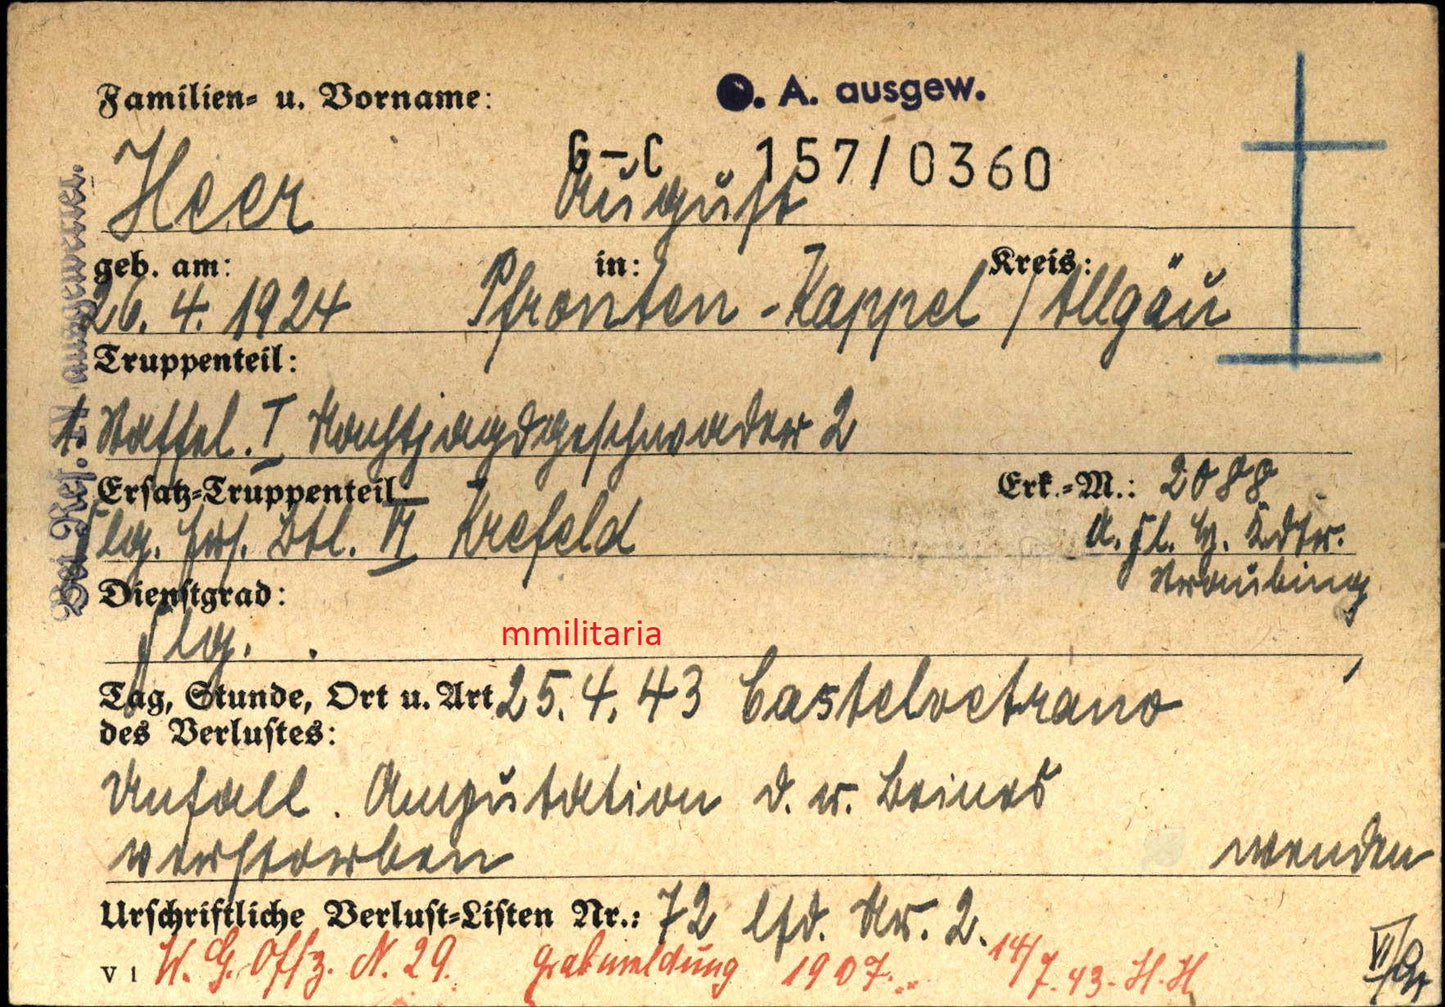 Familien- u. Vorname:
O. A. ausgew.
G-C 157/0360
Heer August
geb. am: in: Kreis:
26. 4. 1924 Pfronten-Kappel / Allgäu
Truppenteil:
1. Staffel. I Nachtjagdgeschwader 2
Ersatz-Truppenteil Erk.-M.: 2088
Flg. Ers. Btl. VI Krefeld d. Fl. H. Kdtr.
Straubing
Dienstgrad:
Flg.
mmilitaria
Tag, Stunde, Ort u. Art 25. 4. 43 Castelvetrano
des Verlustes:
Unfall. Amputation d. r. Beines
verstorben wenden
Urschriftliche Verlust-Listen Nr.: 72 lfd. Nr. 2.
V 1 W. G. Offz. N. 29. Grabmeldung 1907. 14/7.43. H.H
Bei Ref. ausgewertet.